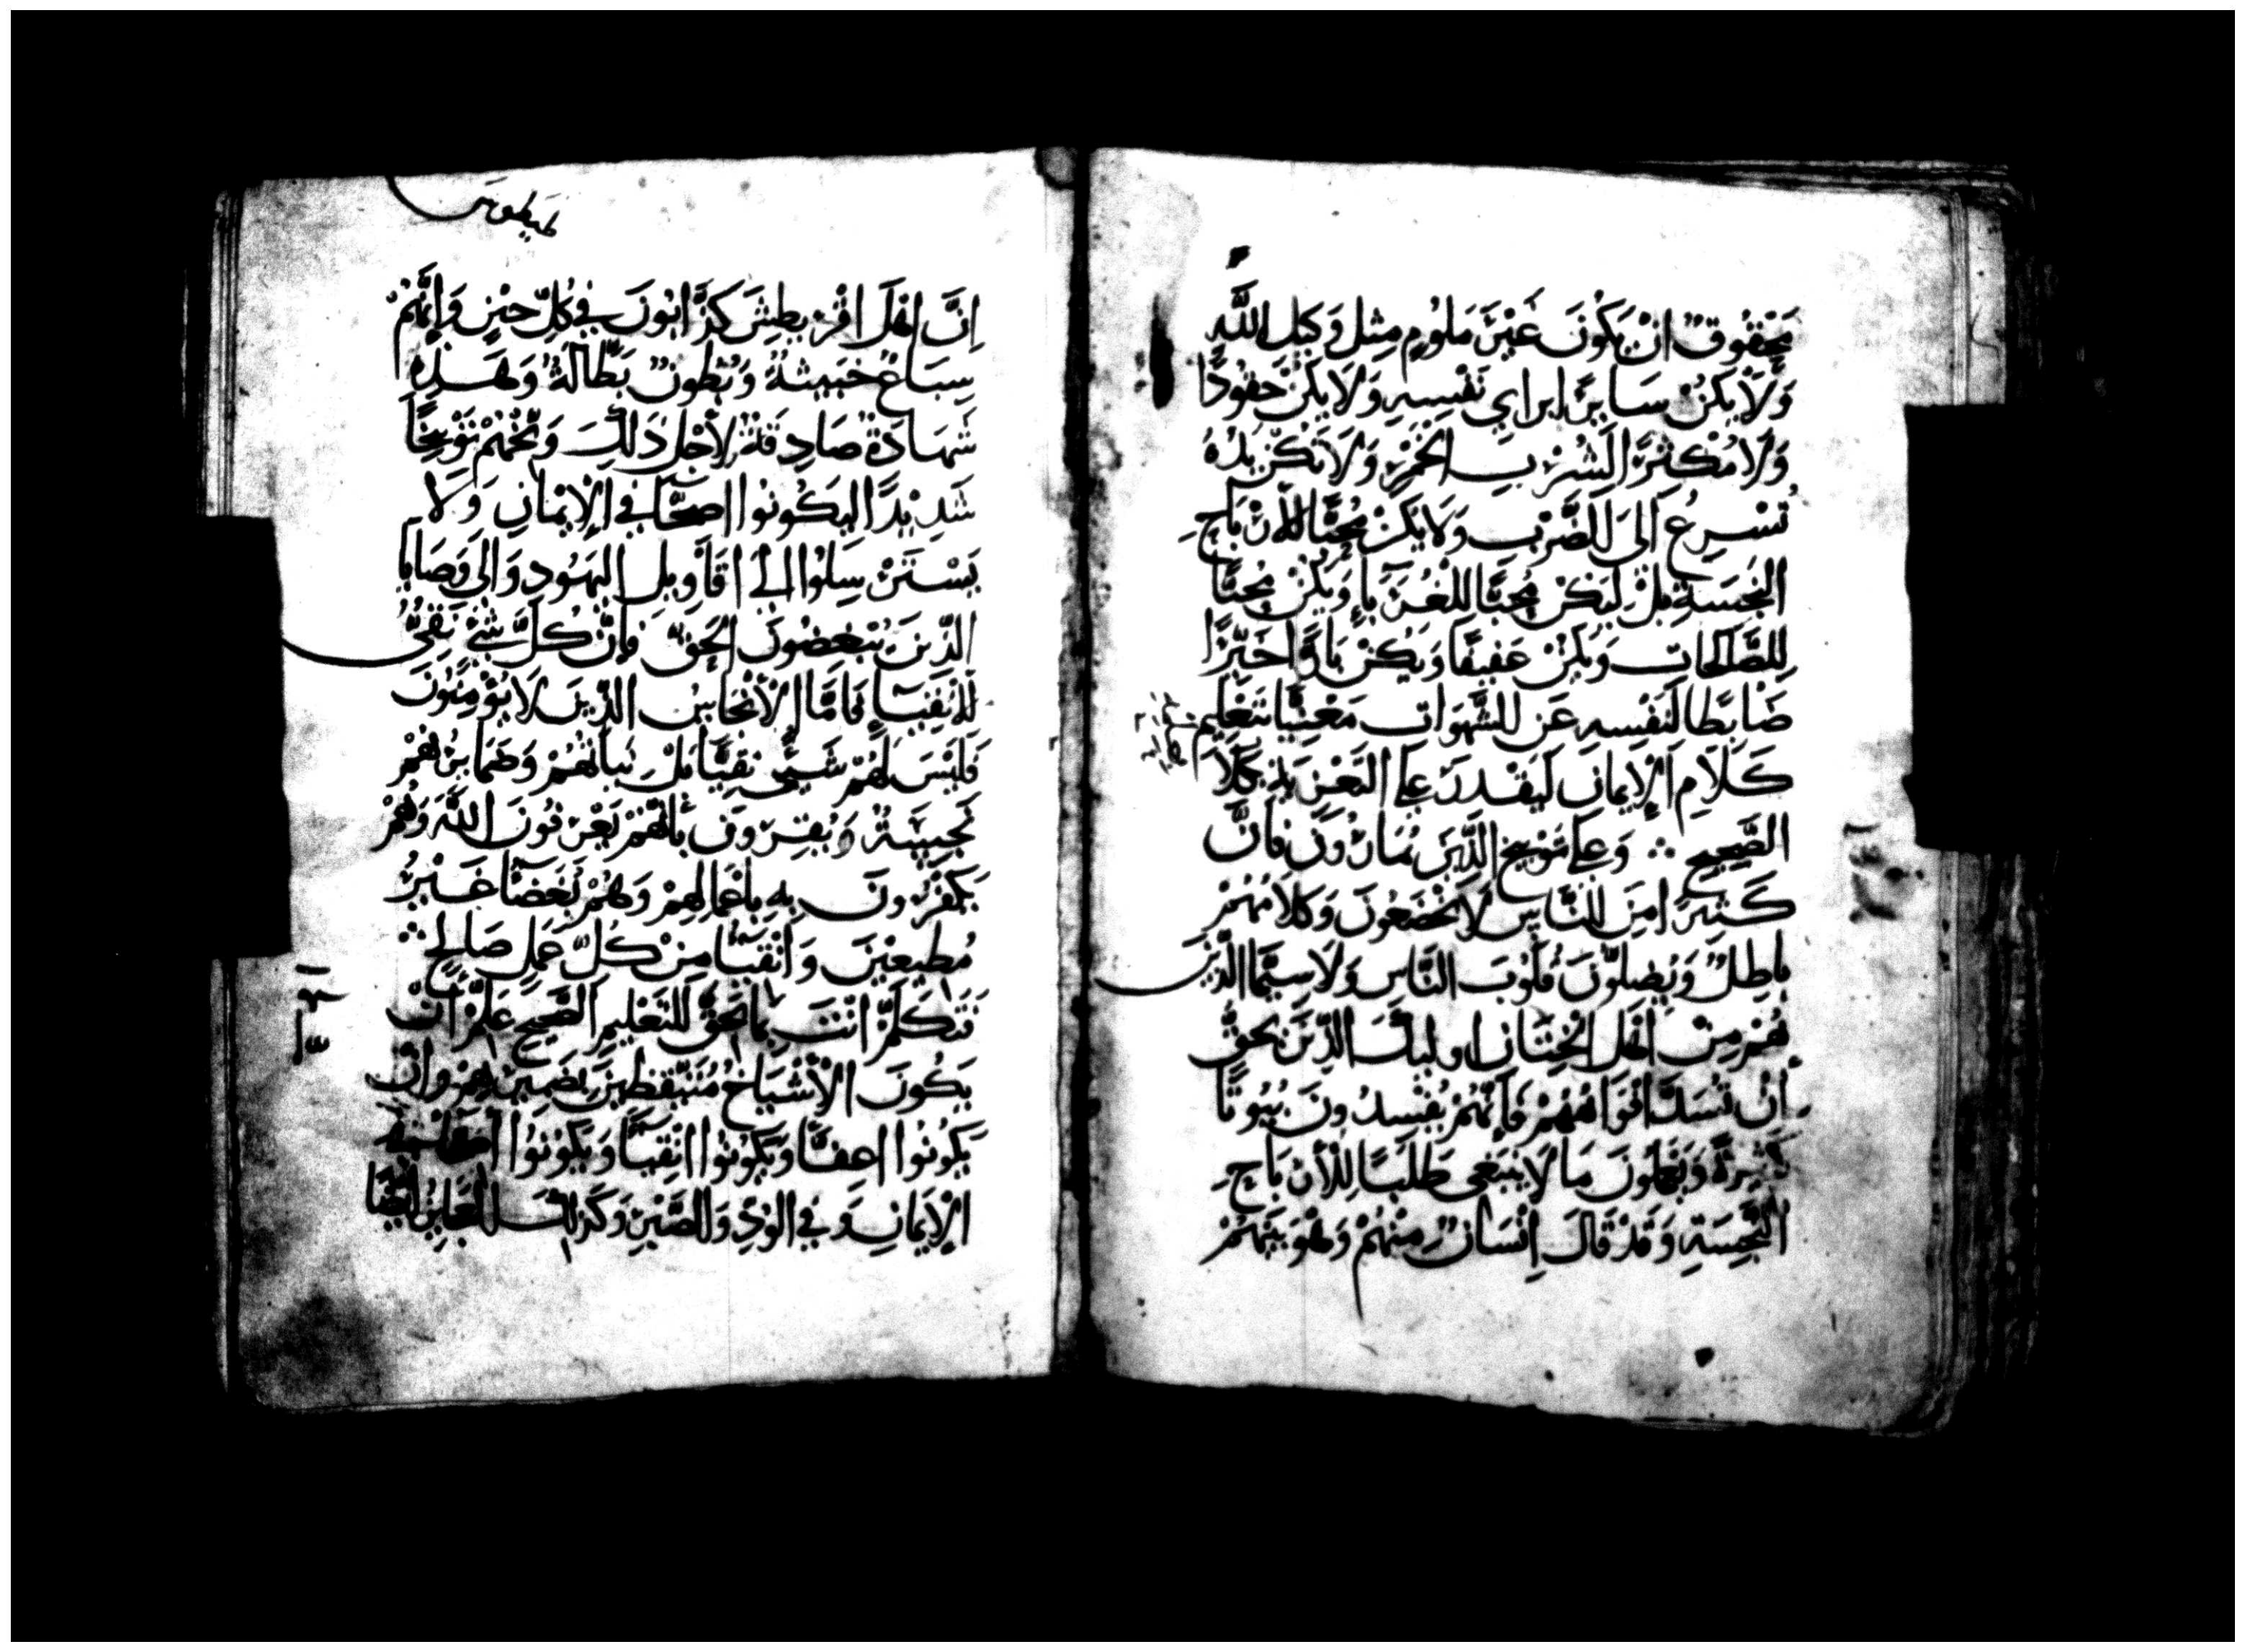 مَحْقُوقٌ انْ يَكُونَ غَيْرَ مَلُومٍ مِثل وَكيل اللَّهِ
وَلَا يكنْ سَايرً ابراي نَفْسِهِ وَلَا يكنْ حقودًا
وَلَا مُكثرً الشُرْب الخَمْرِ وَلَا تكنْ يَدُهُ
تُسْرِعُ الَى الضَّرْب وَلَا يَكنْ مُحِبًّا للأرْبَاحِ
النجسَةِ بلْ ليَكنْ مُحِبًّا للغُرَبَآءِ وَيكنْ مُحِبًّا
لِلصَّالحَات وَيكنْ عَفيفًا وَيَكنْ بَارًّا خَيِّرًا
ضَابطًا لنَفْسِهِ عَن الشَّهوَات مَعْنِيًّا بتَعْلِيم
كَلَامِ الإيمَان ليَقْدرَ عَلى التَعْزيَةِ بكَلَامِ
الصَّحِيحِ ∴ وَعلى تَوْبيخ الَّذِينَ يُمَارُونَ فَانَّ
كَثيرً امنَ النَّاس لَا يَخْضَعُونَ وَكلَامُهُمْ
بَاطِلٌ وَيُضِلُّونَ قُلُوبَ النَّاس وَلَا سِيَّمَا الَّذِينَ
هُمْ مِنْ اهْلِ الخِتَان اوليكَ الَّذِينَ يَحقُّ
أنْ تُسَدَّ افْوَاهُهُمْ فَإنَّهُمْ يُفْسِدُونَ بُيُوتًا
كَثِيرةً وَيعَلمُونَ مَا لَا يَنبَغي طَلَبًا لِلأرْبَاحِ
النَّجِسَةِ وَقَدْ قَالَ انْسَانٌ مِنْهُمْ وَهُوَ نَبيُّهُمْ
طيطوس
اِنَّ اهْلَ اقْريطِشَ كَذَّابُونَ في كُلِّ حِينٍ وَإنَّهُمْ
سِبَاعٌ خَبيثةٌ وَبُطُونٌ بَطَّالةٌ وَهَذهِ
شَهَادَةٌ صَادِقَةٌ لأجْلِ ذَلِكَ وَبّخْهُمْ تَوْبيخًا
شَدِيْدً اليَكُونُوا اصحَّآ في الإيْمَانِ وَلَا
يَسْتَرْسِلُوا الى اقَاوِيلِ اليَهُودِ وَالَى وَصَايَا
الَّذِينَ يُبْغِضُونَ الحَقَّ فَإنَّ كُلَّ شَيْءٍ نَقِيٌّ
للأنْقِيَآءِ فَامَّا الأنْجَاسُ الَّذِينَ لَا يُؤْمِنُونَ
فَلَيْسَ لَهُمْ شَيٌ نقِيًّا بَلْ نيَاتُهُمْ وَضَمَايرُهُمْ
نَجِسَةٌ وَيُقِرُّونَ بأنَّهُمْ يَعْرفُونَ اللَّهَ وَهُمْ
يَكفُرُونَ بِهِ بأعْمَالِهِمْ وَهُمْ بُغَضَآءُ غَيْرُ
مُطِيعِيْنَ وَانْقِيَآ مِنْ كُلِّ عَمَلٍ صَالِحٍ ∴
فتَكَلَّمْ انْتَ بمَا يَحِقُّ للتَعْليمِ الصَّحِيحِ عَلِّمْ انْ
يَكُونَ الأشْيَاخُ مُتَيَقِّظينَ بضَمِيْرِهِمْ وانْ
يَكُونُوا اعِفَّآ وَيَكُونُوا انْقِيَآ وَيَكُونُوا
الإيْمَانِ وَفي الوُدِّ وَالصَّبْرِ وَكذَلِكَ العَجَايزُ ايْضًا